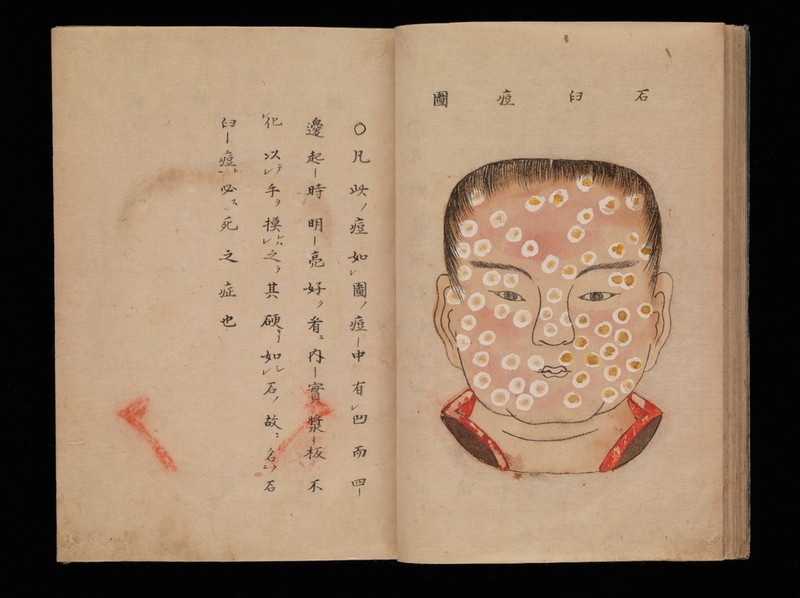 石臼痘圖
○凡此ノ痘如レ圖ノ痘ー中有レ凹而四ー
邊起ー時明ー亮好ク看ニ内ー實漿ー板不
化以テレ手ヲ摸レ之ヲ其硬キ如シレ石ノ故ニ名ク石
臼ー痘必ス死之症也